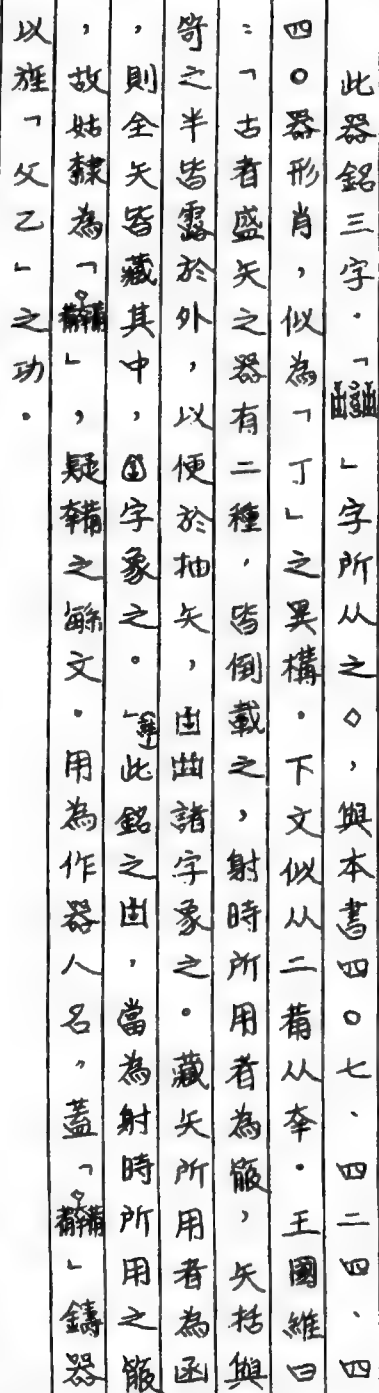 此器銘三字．「」字所从之◇，與本書四〇七、四二四、四
四〇器形肖，似為「丁」之異構．下文似从二𤰇从㚔．王國維曰
：「古者盛矢之器有二種，皆倒載之，射時所用者為箙，矢括與
笴之半皆露於外，以便於抽矢，諸字象之。藏矢所用者為函
，則全矢皆藏其中，字象之。」此銘之，當為射時所用之箙
，故姑隸為「」，疑之緐文．用為作器人名，蓋「」鑄器
以旌「父乙」之功．